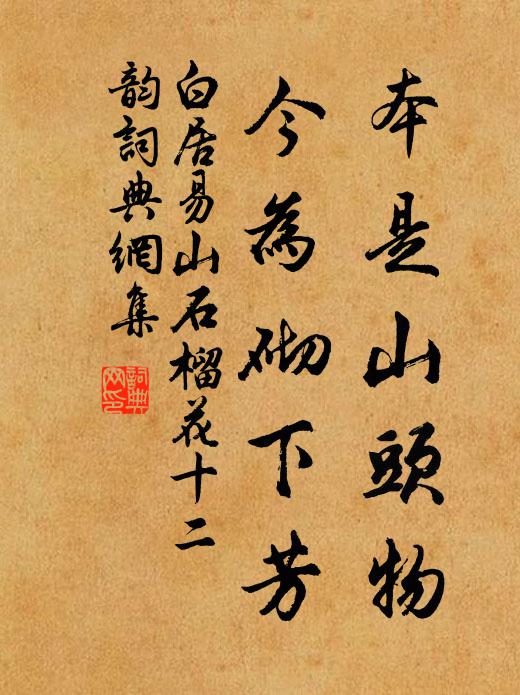 本是山頭物
今為砌下芳
白居易山石榴花十二
韵詞典網集
詞典
网印